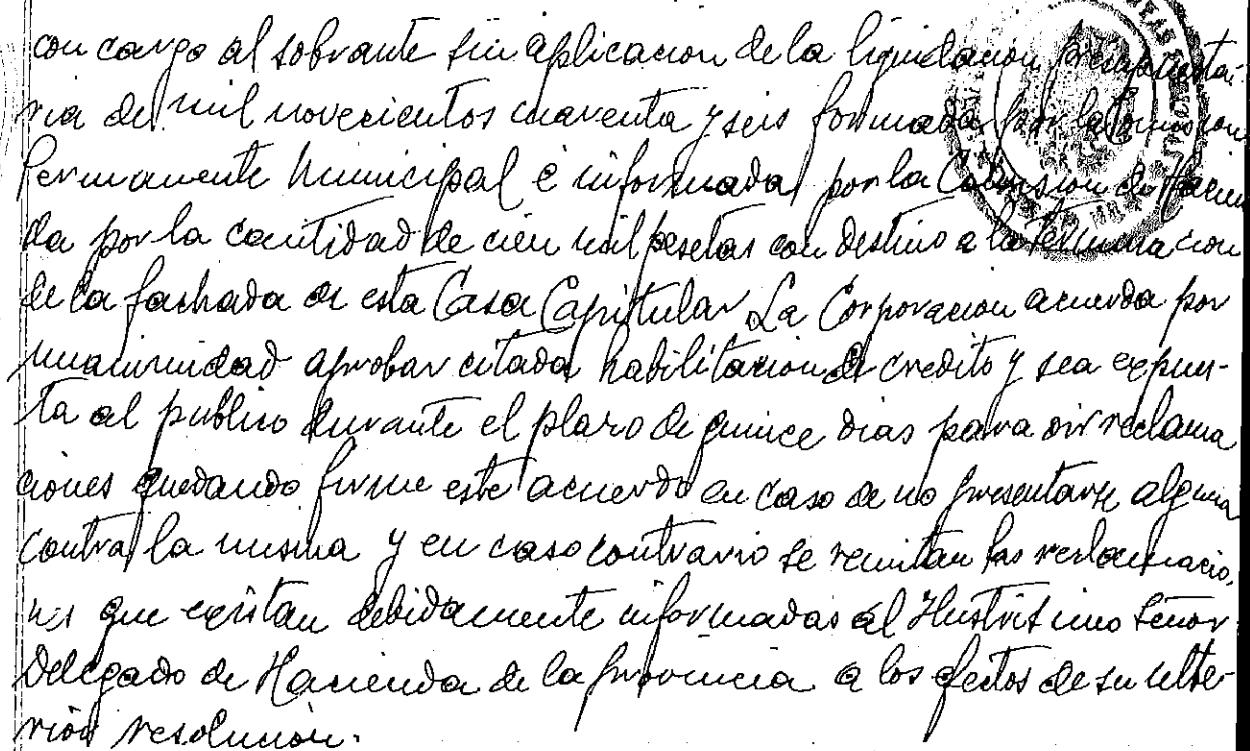 con cargo al sobrante sin aplicacion de la liquidacion presupuesta-
ria de mil novecientos cuarenta y seis formada por la Comision
Permanente Municipal é informada por la Comision de Hacien
da por la cantidad de cien mil pesetas con destino a la terminacion
de la fachada de esta Casa Capitular. La Corporacion acuerda por
unanimidad aprobar citada habilitacion de credito y sea expues-
ta al publico durante el plazo de quince dias para oir reclama
ciones quedando firme este acuerdo en caso de no presentarse alguna
contra la misma y en caso contrario se remitan las reclamacio,
nes que existan debidamente informadas al Ilustrisimo Señor
Delegado de Hacienda de la provincia a los efectos de su ulte-
rior resolucion.